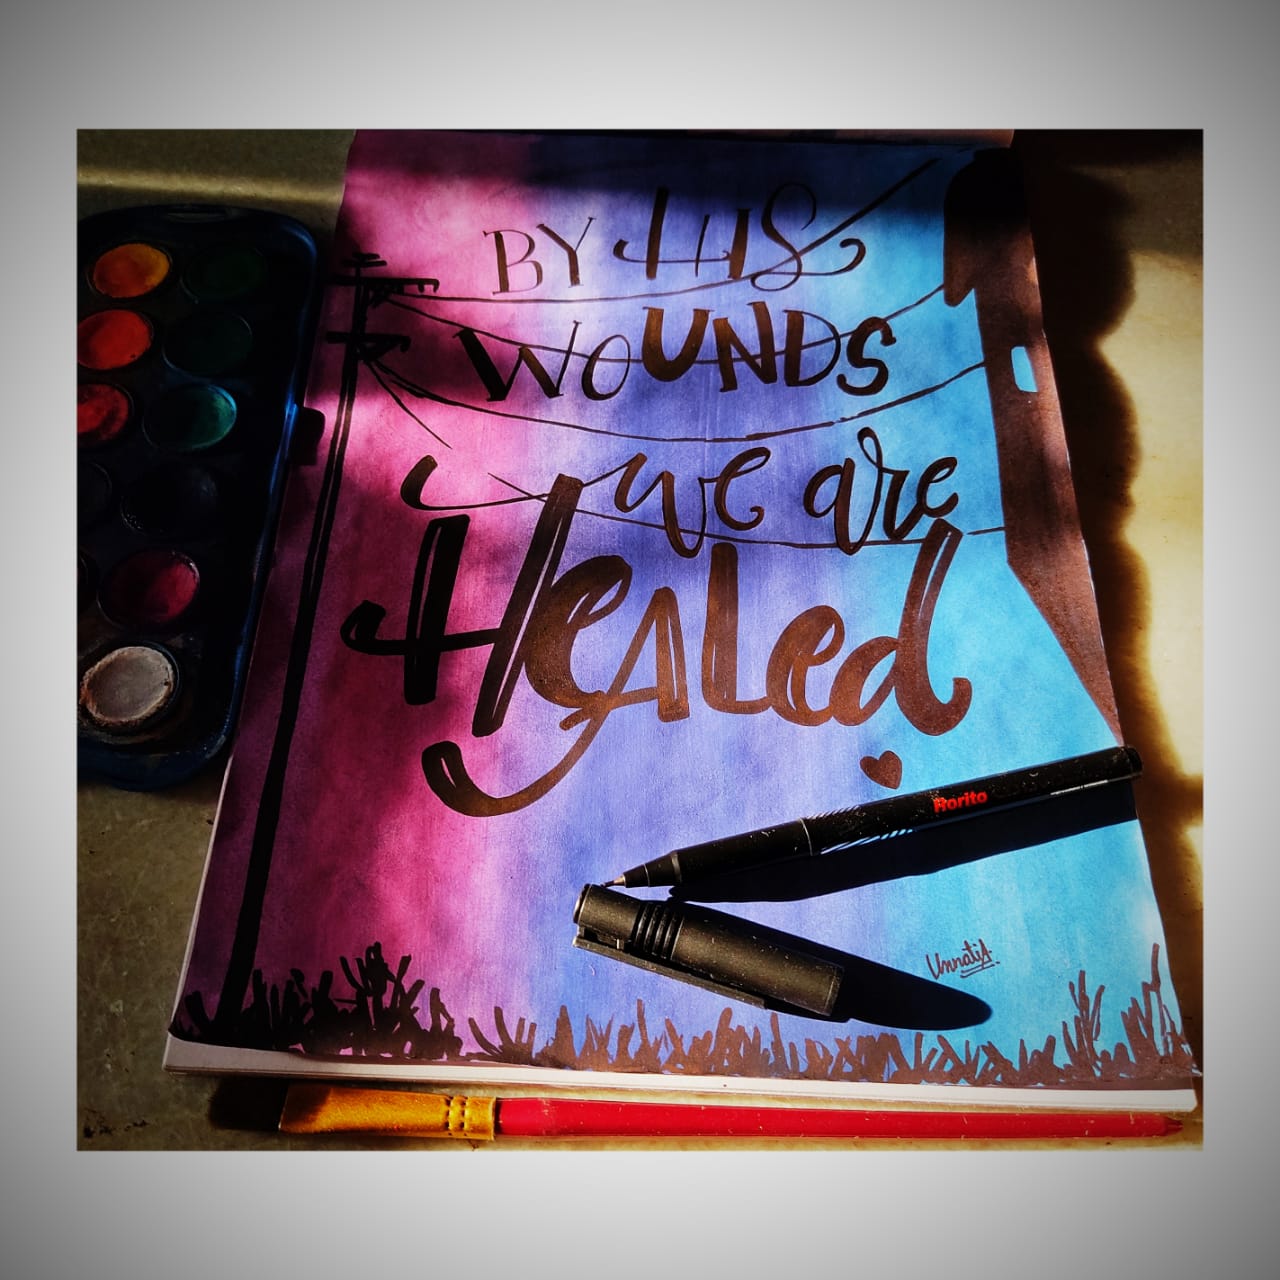 BY HIS
WOUNDS
we are
HeALed
Rorito
UnnatiA.